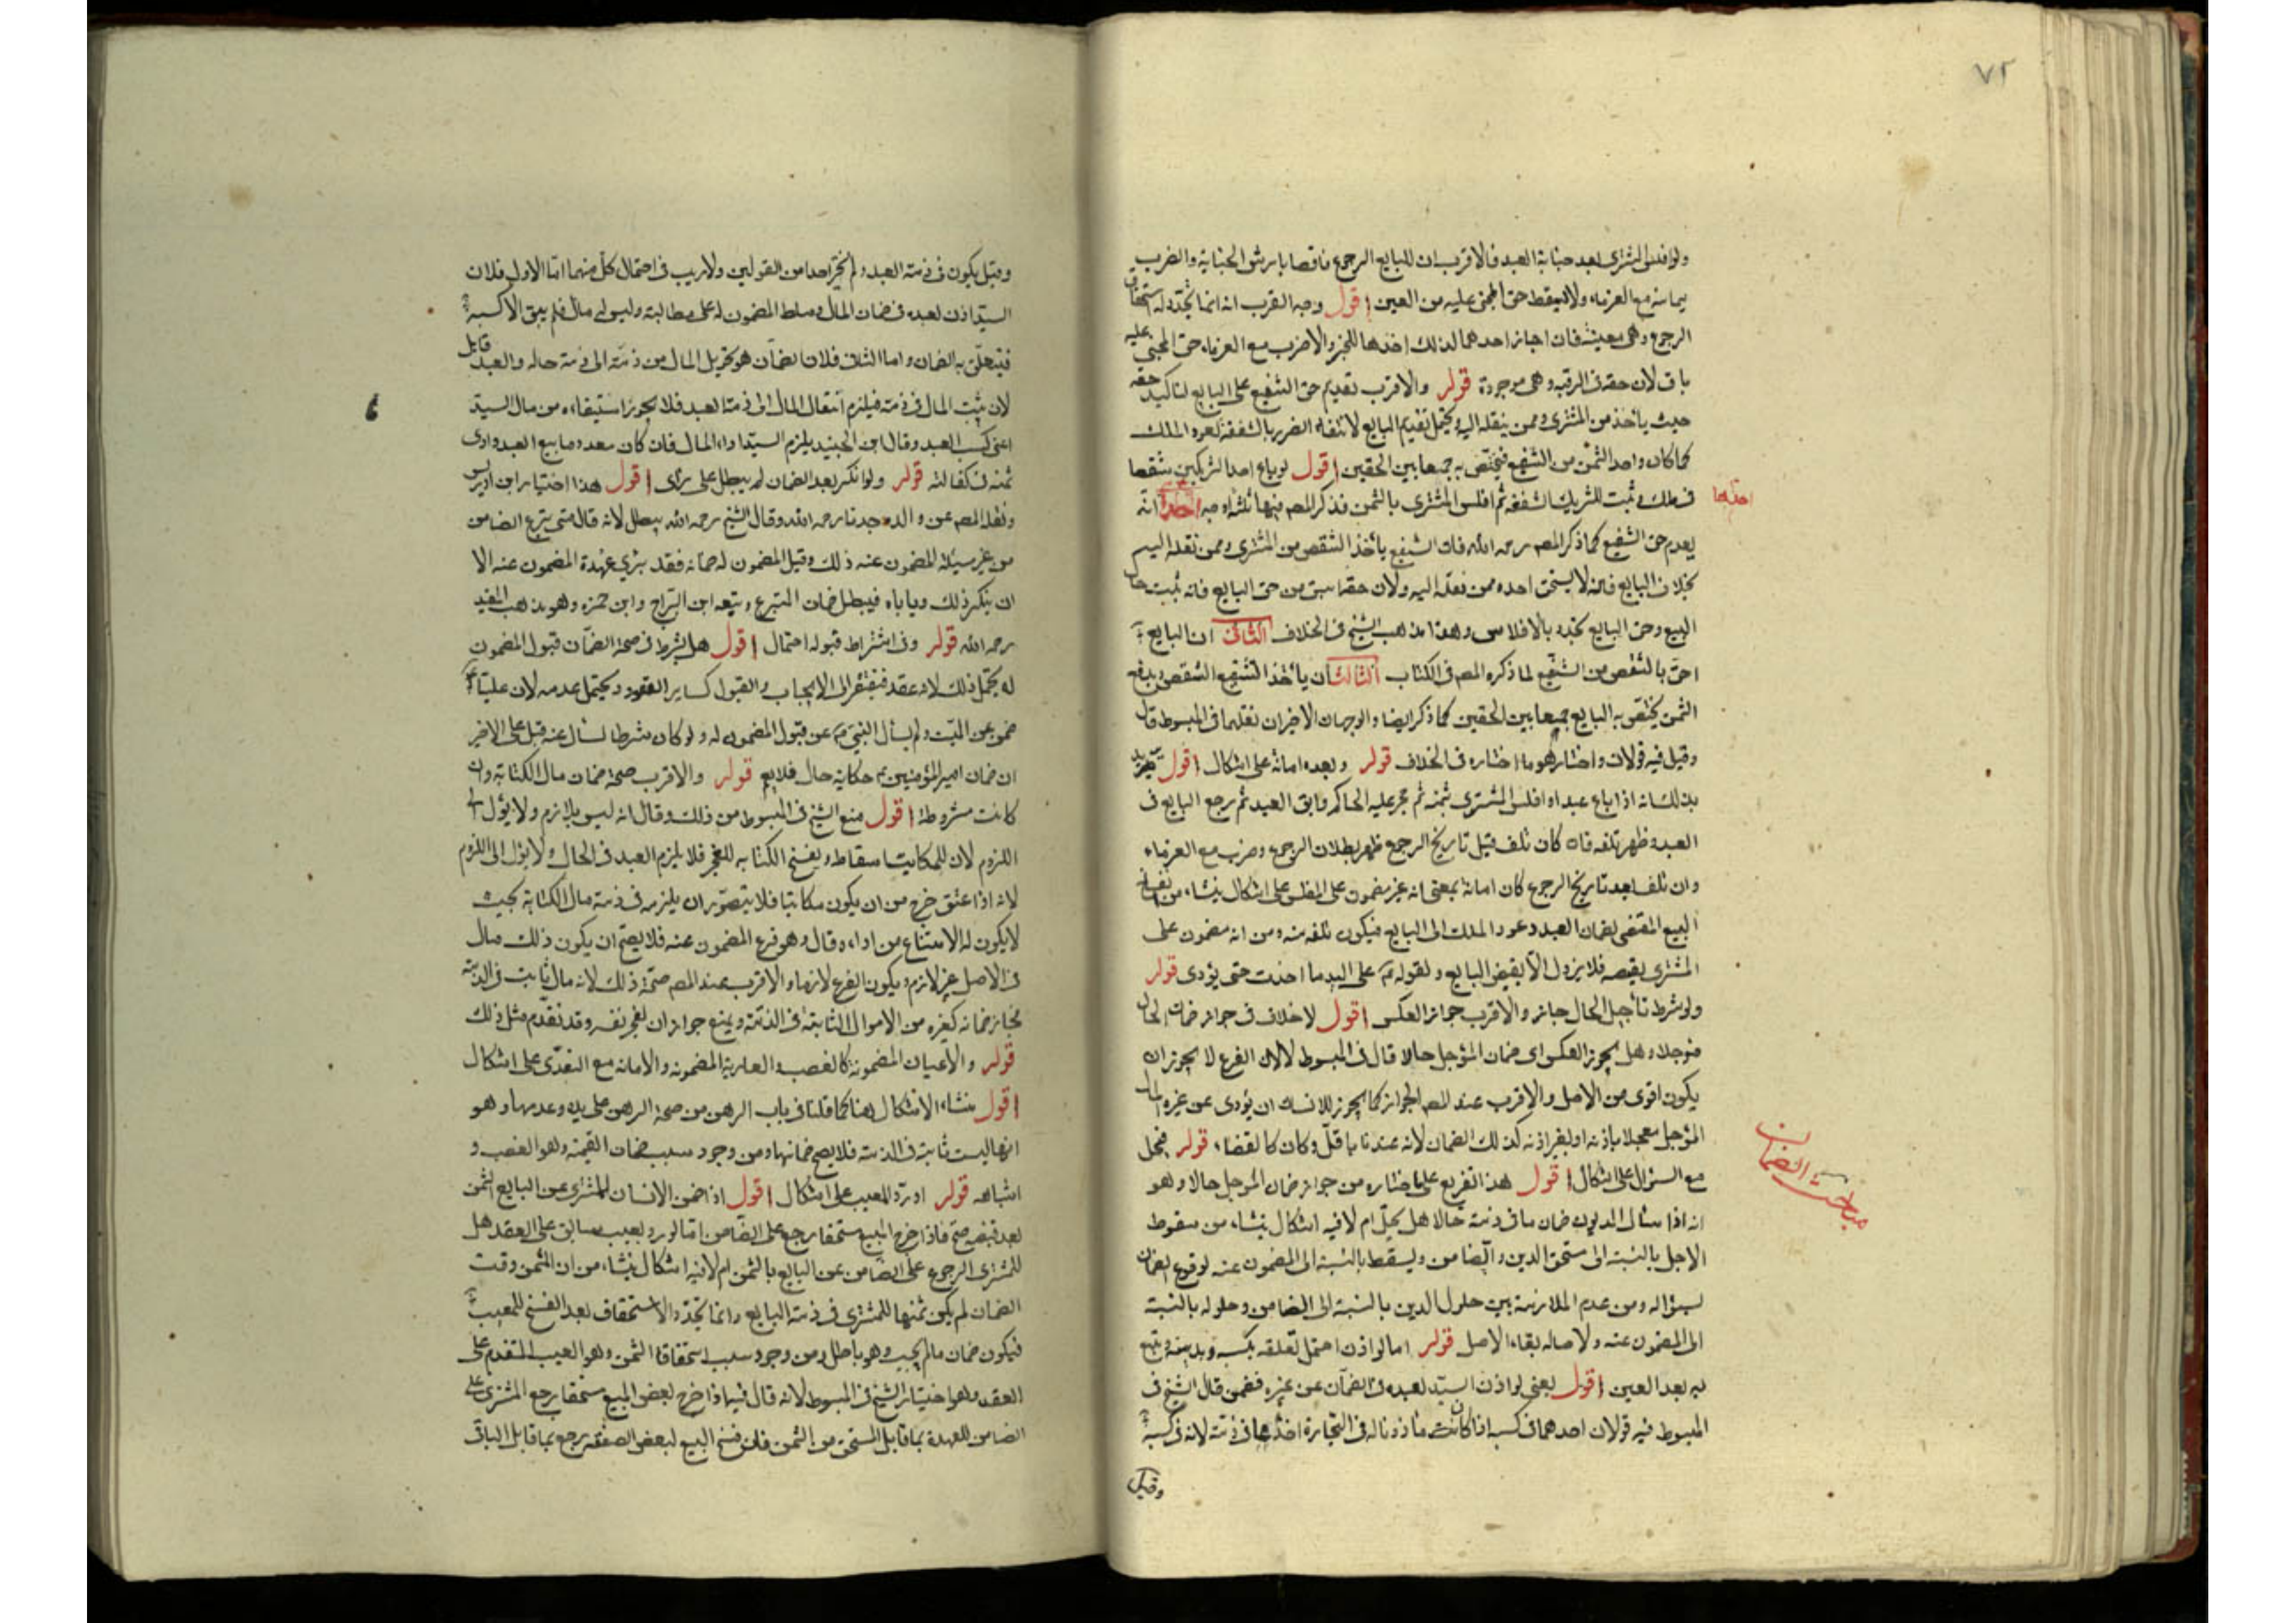 ٧٢
ولو افلس المشتري بعد جناية العبد فالاقرب ان للبايع الرجوع ناقصا بارش الجناية والضرب
به مع الغرماء ولا يسقط حق المجني عليه من العين اقول وجه القرب انه انما تجدد له استحقاق
الرجوع وهي معيبة فان اجاز احدهما لذلك اخذها للخبر والا ضرب مع الغرماء حق المجني عليه
باق لان حقه في الرقبة وهي موجودة قوله والاقرب تقديم حق الشفيع على البايع لتاكيد حقه
حيث يأخذ من المشتري وممن ينقله اليه ويحتمل تقديم البايع لانتفاء الضرر بالشفعة لعود الملك
كما كان واخذ الثمن من الشفيع فيختص به جمعا بين الحقين اقول لو باع احد الشريكين شقصا
في ملك وثبت للشريك الشفعة ثم افلس المشتري بالثمن فذكر المصـ فيها ثلثة اوجه احدها انه
احدها
يقدم حق الشفيع كما ذكر المصـ رحمه الله فان الشفيع يأخذ الشقص من المشتري وممن نقله اليه
بخلاف البايع فانه لا يستحق اخذه ممن نقله اليه ولان حقه اسبق من حق البايع فانه يثبت حال
البيع وحق البايع تجدد بالافلاس وهذا مذهب الشيخ في الخلاف الثاني ان البايع
احق بالشقص من الشفيع لما ذكره المصـ في الكتاب الثالث ان يأخذ الشفيع الشقص ويدفع
الثمن يختص به البايع جمعا بين الحقين كما ذكر ايضا والوجهان الاخيران نقلهما في المبسوط قال
وقيل فيه قولان واختار هو ما اختاره في الخلاف قوله وبعده امانة على اشكال اقول
بذلك انه اذا باع عبدا وافلس المشتري بثمنه ثم حجر عليه الحاكم وابق العبد ثم رجع البايع في
العبد وظهر تلفه فان كان تلف قبل تاريخ الرجوع ظهر بطلان الرجوع وضرب مع الغرماء
وان تلف بعد تاريخ الرجوع كان امانة بمعنى انه غير مضمون على المفلس على اشكال ينشاء من انفساخ
البيع المقتضى لضمان العبد وعود الملك الى البايع فيكون تلفه منه ومن انه مضمون على
المشتري بقبضه فلا يزول الا بقبض البايع ولقوله عم على اليد ما اخذت حتى يؤدى قوله
ولو شرط تأجيل الحال جاز والاقرب جواز العكس اقول لا خلاف في جواز ضمان الحال
مؤجلا وهل يجوز العكس اى ضمان المؤجل حالا قال في المبسوط لا لان الفرع لا يجوز ان
يكون اقوى من الاصل والاقرب عند المصـ الجواز كما يجوز للانسان ان يؤدى عن غيره المال
المؤجل معجلا باذنه او بغير اذنه كذلك الضمان لانه عندنا ناقل وكان كالقضاء قوله فيحل
مع السؤال على اشكال اقول هذا تفريع على ما اختاره من جواز ضمان المؤجل حالا وهو
مباحث الضمان
انه اذا سأل المديون ضمان ما في ذمته حالا هل يحل ام لا فيه اشكال ينشاء من سقوط
الاجل بالنسبة الى مستحق الدين والضامن ويسقط بالنسبة الى المضمون عنه لوقوع الضمان
بسؤاله ومن عدم الملازمة بين حلول الدين بالنسبة الى الضامن وحلوله بالنسبة
الى المضمون عنه ولاصالة بقاء الاصل قوله اما لو اذن احتمل تعلقه بكسبه وبذمته ويتبع
به بعد العين اقول يعنى لو اذن السيد لعبده في الضمان عن غيره فضمن قال الشيخ في
المبسوط فيه قولان احدهما في كسبه اذا كان مأذونا له في التجارة في ذمته لانه في كسبه
وقيل
وقيل يكون في ذمة العبد ولم يختر احدا من القولين ولا ريب في احتمال كل منهما اما الاول فلان
السيد اذن لعبده في ضمان المال وسلط المضمون له على مطالبته وليس له مال فلم يبق الا كسبه
فيتعلق به الضمان واما الثاني فلان الضمان هو تحويل المال من ذمة الى ذمة حاله والعبد قابل
لان يثبت المال في ذمته فيلزم انتقال المال الى ذمة العبد فلا يجوز استيفاءه من مال السيد
اعنى كسب العبد وقال ابن الجنيد يلزم السيد اداء المال فان كان معدوما بيع العبد وادى
ثمنه في كفالته قوله ولو انكر بعد الضمان لم يبطل على راى اقول هذا اختيار ابن ادريس
ونقله المصـ عن والده جدنا رحمه الله وقال الشيخ رحمه الله يبطل لانه قال متى تبرع الضامن
من غير مسئلة المضمون عنه ذلك وقبل المضمون له ضمانه فقد برئ عهدة المضمون عنه الا
ان ينكر ذلك وياباه فيبطل ضمان المتبرع وتبعه ابن البراج وابن حمزه وهو مذهب المفيد
رحمه الله قوله وفي اشتراط قبوله احتمال اقول هل يشترط في صحة الضمان قبول المضمون
له يحتمل ذلك لانه عقد فيفتقر الى الايجاب والقبول كساير العقود ويحتمل عدمه لان عليا عم
ضمن عن الميت ولم يسأل النبي عن قبول المضمون له ولو كان شرطا لسأل عنه قيل على الاخير
ان ضمان امير المؤمنين عم حكاية حال فلا يعم قوله والاقرب صحة ضمان مال الكتابة وان
كانت مشروطة اقول منع الشيخ في المبسوط من ذلك وقال انه ليس بلازم ولا يؤل الى
اللزوم لان للمكاتب اسقاطه ويفسخ الكتابه للعجز فلا يلزم العبد في الحال ولا يؤل الى اللزوم
لانه اذا عتق خرج من ان يكون مكاتبا فلا يتصور ان يلزمه في ذمته مال الكتابة بحيث
لا يكون له الامتناع من اداءه وقال وهو فرع المضمون عنه فلا يصح ان يكون ذلك مال
في الاصل غير لازم ويكون الفرع لازما والاقرب عند المصـ صحة ذلك لانه مال ثابت في الذمة
فجاز ضمانه كغيره من الاموال الثابتة في الذمة ويمنع جواز ان يعجز نفسه وقد تقدم مثل ذلك
قوله والاعيان المضمونة كالغصب والعارية المضمونه والامانة مع التعدى على اشكال
اقول ينشاء الاشكال هنا كما قلنا في باب الرهن من صحة الرهن على يده وعدمها وهو
انها ليست ثابتة في الذمة فلا يصح ضمانها ومن وجود سبب ضمان القيمة وهو الغصب و
اشباهه قوله او رد المعيب على اشكال اقول اذا ضمن الانسان للمشترى عن البايع الثمن
بعد قبضه صح فاذا خرج المبيع مستحقا رجع على الضامن اما لو رد بعيب سابق على العقد هل
للمشترى الرجوع على الضامن عن البايع بالثمن ام لا فيه اشكال ينشاء من ان الثمن وقت
الضمان لم يكن ثمنها للمشترى في ذمة البايع وانما تجدد الاستحقاق بعد الفسخ للمعيب
فيكون ضمان مالم يجب وهو باطل ومن وجود سبب استحقاق الثمن وهو العيب المتقدم على
العقد وهو اختيار الشيخ في المبسوط لانه قال فيما اذا خرج بعض المبيع مستحقا رجع المشترى على
الضامن للعهدة بما قابل المستحق من الثمن فان فسخ البيع لبعض الصفقه رجع بما قابل الباقى